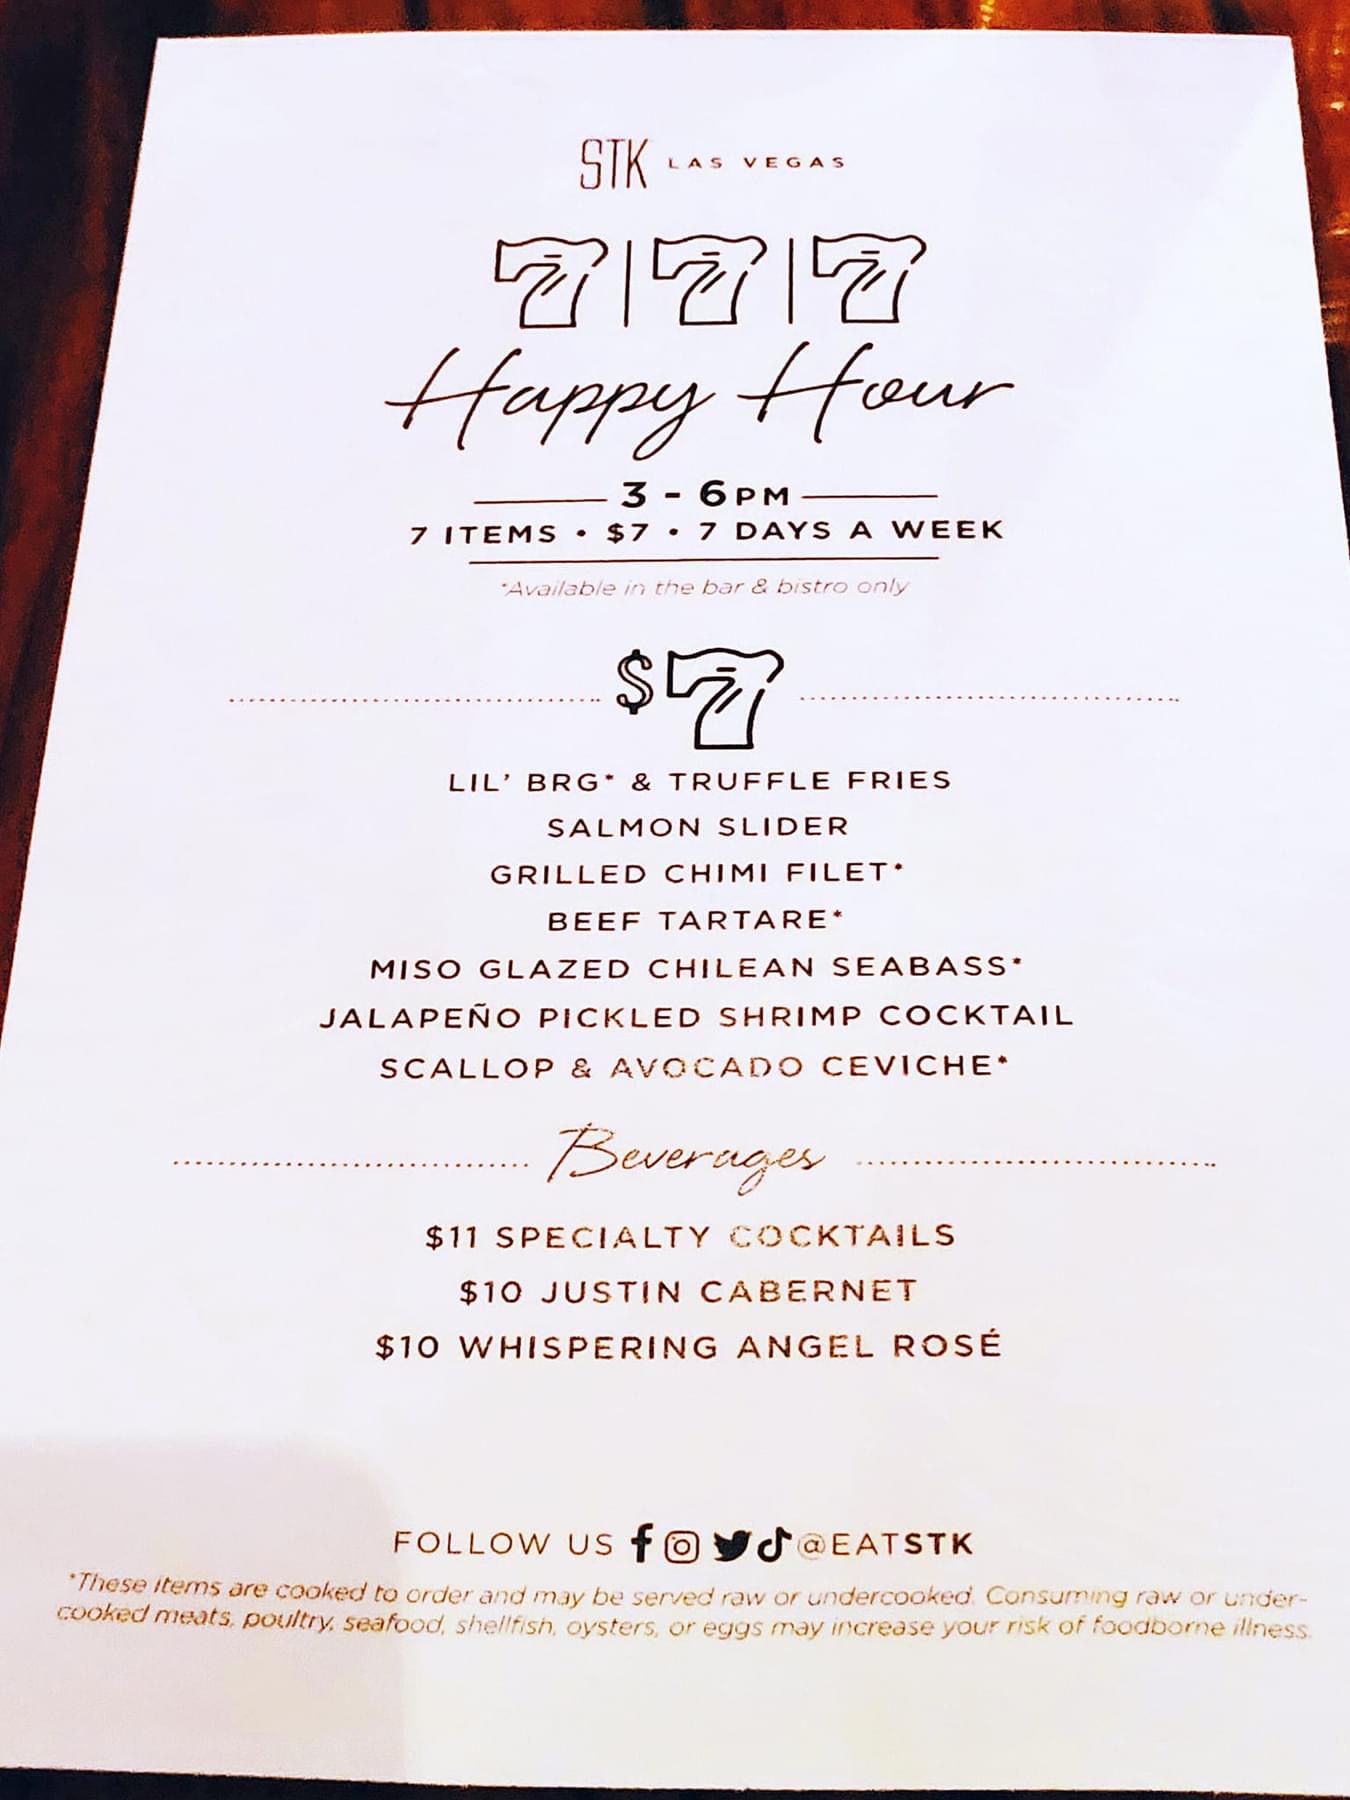 STK LAS VEGAS
7|7|7
Happy Hour
3 - 6PM
7 ITEMS • $7 • 7 DAYS A WEEK
*Available in the bar & bistro only
$7
LIL' BRG* & TRUFFLE FRIES
SALMON SLIDER
GRILLED CHIMI FILET*
BEEF TARTARE*
MISO GLAZED CHILEAN SEABASS*
JALAPEÑO PICKLED SHRIMP COCKTAIL
SCALLOP & AVOCADO CEVICHE*
Beverages
$11 SPECIALTY COCKTAILS
$10 JUSTIN CABERNET
$10 WHISPERING ANGEL ROSÉ
FOLLOW US @EATSTK
*These items are cooked to order and may be served raw or undercooked. Consuming raw or under-
cooked meats, poultry, seafood, shellfish, oysters, or eggs may increase your risk of foodborne illness.